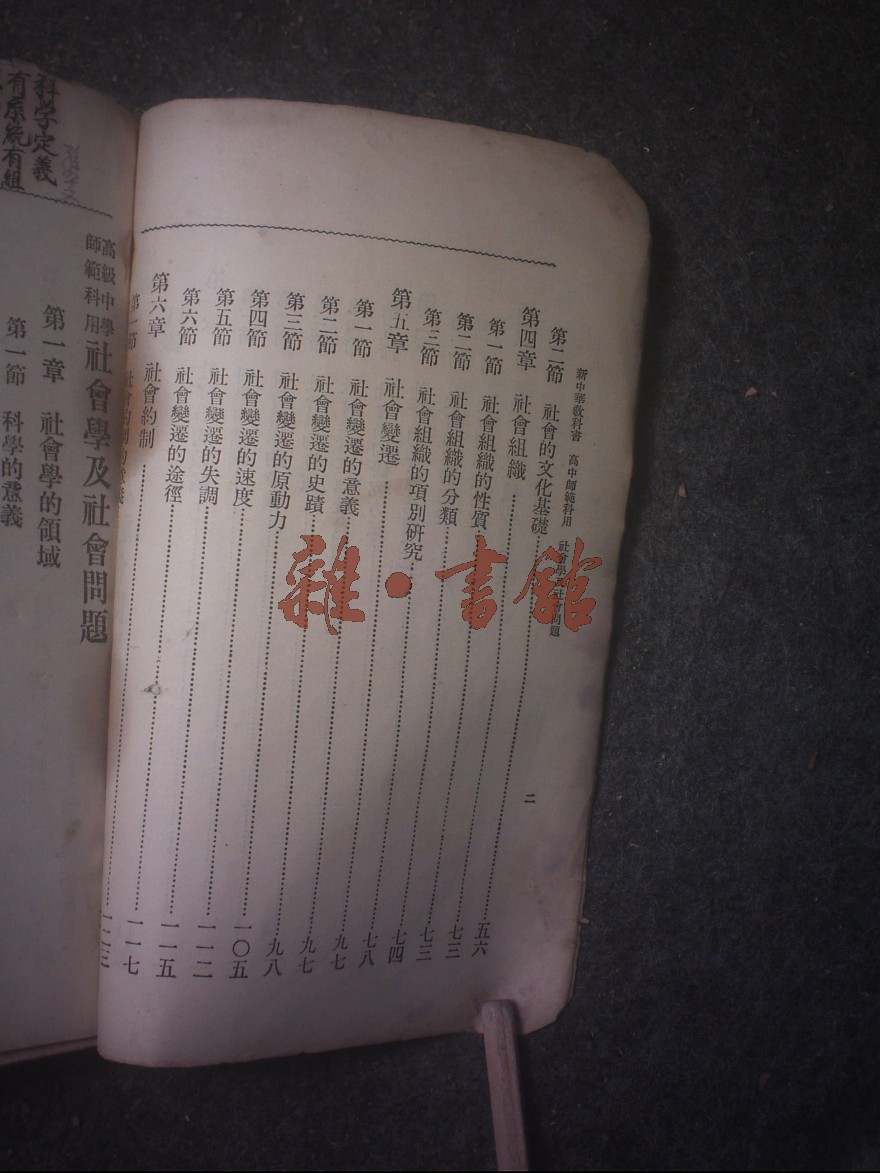 新中華教科書 高中師範科用 社會學及社會問題 二
第二節 社會的文化基礎 五六
第四章 社會組織 七三
第一節 社會組織的性質 七三
第二節 社會組織的分類 七四
第三節 社會組織的項別研究 七八
第五章 社會變遷 九七
第一節 社會變遷的意義 九七
第二節 社會變遷的史蹟 九八
第三節 社會變遷的原動力 一〇五
第四節 社會變遷的速度 一一二
第五節 社會變遷的失調 一一五
第六節 社會變遷的途徑 一一七
第六章 社會約制 一二三
第一節
科學定義
有系統有組
高級中學
師範科用
社會學及社會問題
第一章 社會學的領域
第一節 科學的意義
雜·書館